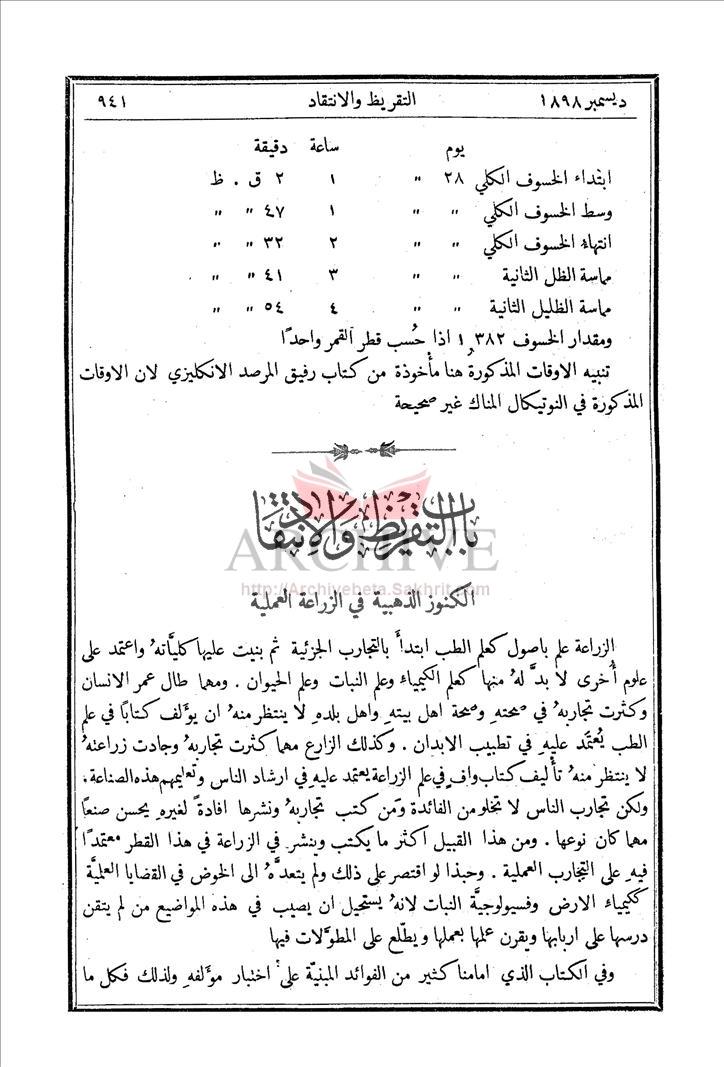 ديسمبر ١٨٩٨ التقريظ والانتقاد ٩٤١
يوم ساعة دقيقة
ابتداء الخسوف الكلي ٢٨ " ١ ٢ ق . ظ
وسط الخسوف الكلي " " ١ ٤٧ " "
انتهاء الخسوف الكلي " " ٢ ٣٢ " "
مماسة الظل الثانية " " ٣ ٤١ " "
مماسة الظليل الثانية " " ٤ ٥٤ " "
ومقدار الخسوف ١٫٣٨٢ اذا حُسب قطر القمر واحدًا
تنبيه الاوقات المذكورة هنا مأخوذة من كتاب رفيق المرصد الانكليزي لان الاوقات
المذكورة في النوتيكال المناك غير صحيحة
باب التقريظ والانتقاد
ARCHIVE
http://Archivebeta.Sakhrit.com
الكنوز الذهبية في الزراعة العملية
الزراعة علم باصول كعلم الطب ابتدأ بالتجارب الجزئية ثم بنيت عليها كلياته واعتمد على
علوم أُخرى لا بدَّ لهُ منها كعلم الكيمياء وعلم النبات وعلم الحيوان . ومهما طال عمر الانسان
وكثرت تجاربهُ في صحتهِ وصحة اهل بيتهِ واهل بلدهِ لا ينتظر منهُ ان يؤلف كتابًا في علم
الطب يُعتمَد عليهِ في تطبيب الابدان . وكذلك الزارع مهما كثرت تجاربهُ وجادت زراعتهُ
لا ينتظر منهُ تأليف كتاب وافٍ في علم الزراعة يعتمد عليهِ في ارشاد الناس وتعليمهم هذه الصناعة،
ولكن تجارب الناس لا تخلو من الفائدة ومَن كتب تجاربهُ ونشرها افادةً لغيرهِ يحسن صنعًا
مهما كان نوعها . ومن هذا القبيل اكثر ما يكتب وينشر في الزراعة في هذا القطر معتمدًا
فيهِ على التجارب العملية . وحبذا لو اقتصر على ذلك ولم يتعدَّهُ الى الخوض في القضايا العلميَّة
ككيمياء الارض وفسيولوجيَّة النبات لانهُ يستحيل ان يصيب في هذه المواضيع من لم يتقن
درسها على اربابها ويقرن علمها بعملها ويطَّلع على المطوَّلات فيها
وفي الكتاب الذي امامنا كثير من الفوائد المبنيَّة على اختبار مؤلفهِ ولذلك فكل ما